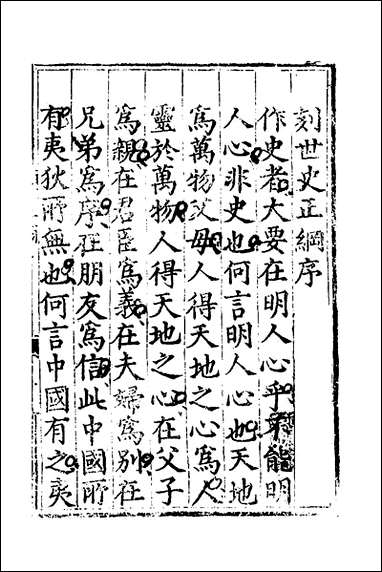 刻世史正綱序
作史者大要在明人心乎不能明
人心非史也何言明人心也天地
為萬物父母人得天地之心為人
靈於萬物人得天地之心在父子
為親在君臣為義在夫婦為別在
兄弟為序在朋友為信此中國所
有夷狄所無也何言中國有之夷